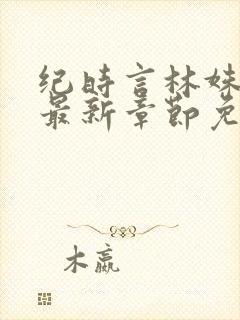 纪时言林妹
最新章节免
木嬴